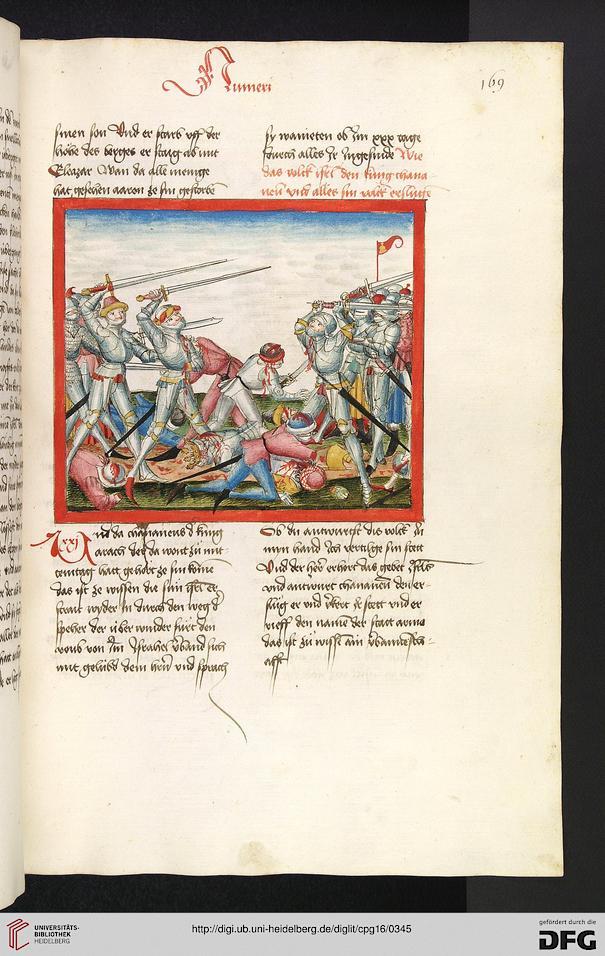 Numeri
169
sinen son Vnd er starb vff der
höhe des berges er staig ab mit
Eleazar Wan da alle menige
hat gesehen aaron ze sin gestorbe
sy waineten ob im xxx tage
durch alles ir ingesinde Wie
das volck isrl den küng chana
neū vnd alles sin volck erslüge
xxj
Vnd da chananeus d küng
aarach der da wont zü mit
temtag hatt gehört ze sin kome
das ist ze wissen die sün isrl er
strait wyder in durch den weg d
speher der über winder fürt den
roub von im Israhel sich
mit gelübd dem hern vnd sprach
Ob du antwurst dis volk in
myn hand Ich vertilge sin stett
Vnd der her erhört das gebet Isrls
vnd antwurt chananeū den er
slüg er vnd ze stett vnd er
rieff den name der statt
das ist zü wisse ain
UNIVERSITÄTS-
BIBLIOTHEK
HEIDELBERG
http://digi.ub.uni-heidelberg.de/diglit/cpg16/0345
gefördert durch die
DFG